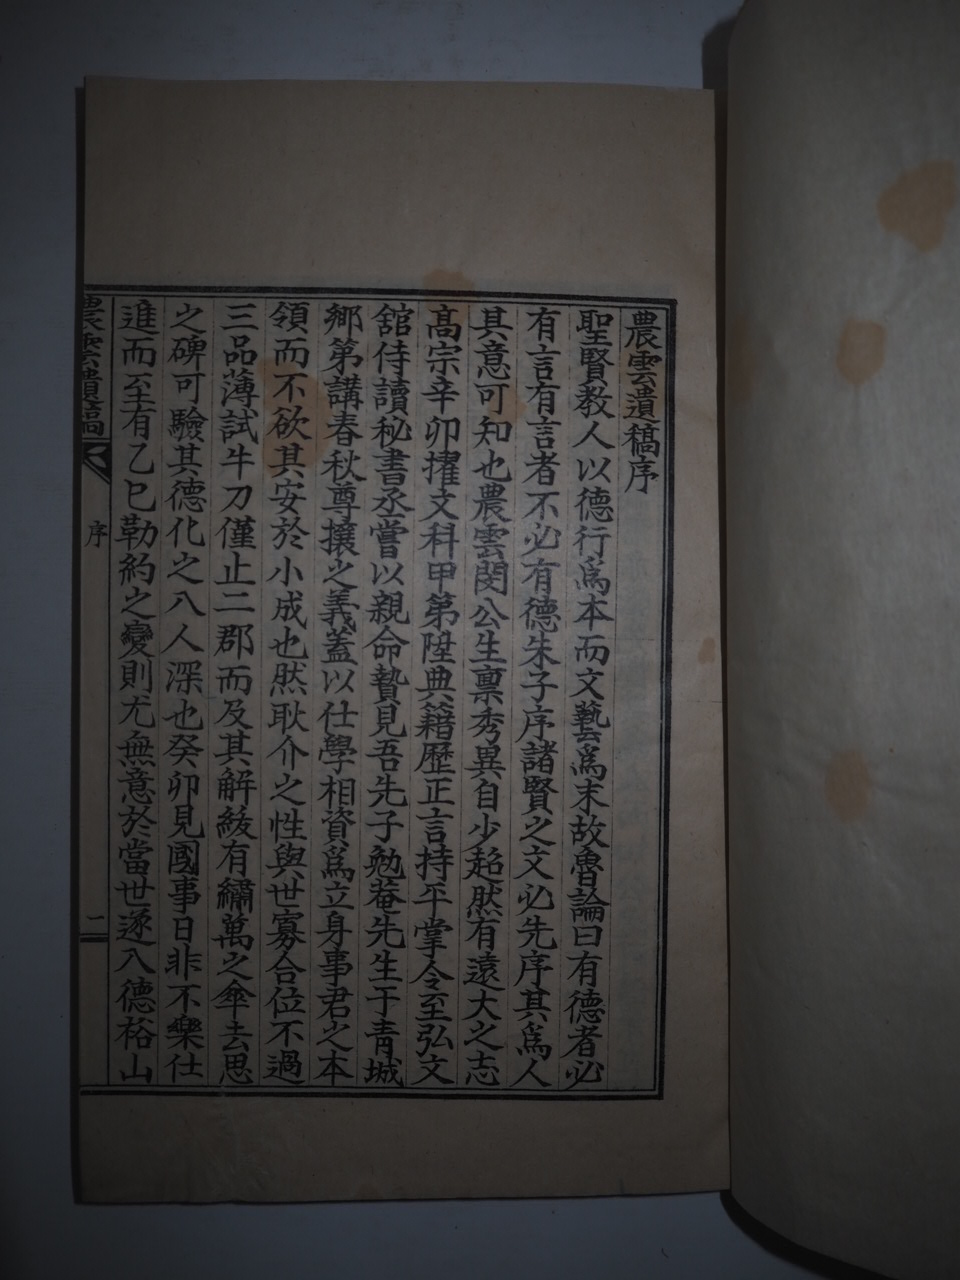 農雲遺稿序
聖賢教人以德行爲本而文藝爲末故魯論曰有德者必
有言有言者不必有德朱子序諸賢之文必先序其爲人
其意可知也農雲閔公生稟秀異自少超然有遠大之志
高宗辛卯擢文科甲第陞典籍歷正言持平掌令至弘文
舘侍讀秘書丞嘗以親命贄見吾先子勉菴先生于青城
鄉第講春秋尊攘之義蓋以仕學相資爲立身事君之本
領而不欲其安於小成也然耿介之性與世寡合位不過
三品薄試牛刀僅止二郡而及其解綾有繡萬之傘去思
之碑可驗其德化之入人深也癸卯見國事日非不樂仕
進而至有乙巳勒約之變則尤無意於當世遂入德裕山
農雲遺稿
序
二